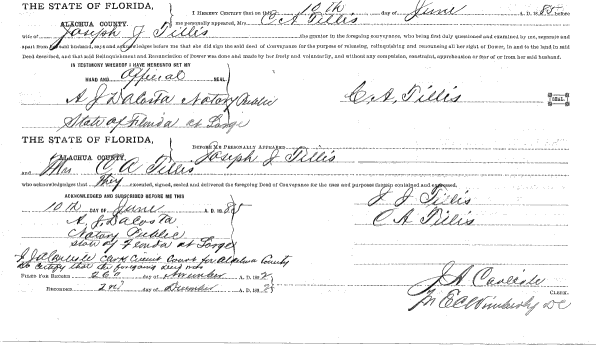 THE STATE OF FLORIDA,
ALACHUA COUNTY.
I HEREBY CERTIFY that on this 10th day of June A. D. 1885 before
me personally appeared, Mrs. C A Tillis
wife of Joseph J Tillis the grantor in the foregoing conveyance, who being first duly questioned and examined by me, separate and
apart from her said husband, says and acknowledges before me that she did sign the said deed of Conveyance for the purpose of releasing, relinquishing and renouncing all her right of Dower, in and to the land in said
Deed described, and that said Relinquishment and Renunciation of Dower was done and made by her freely and voluntarily, and without any compulsion, constraint, apprehension or fear of or from her said husband.
IN TESTIMONY WHEREOF I HAVE HEREUNTO SET MY
HAND AND Official SEAL
A. J. DaCosta Notary Public
State of Florida at Large
C. A. Tillis
SEAL
THE STATE OF FLORIDA,
ALACHUA COUNTY.
BEFORE ME PERSONALLY APPEARED Joseph J Tillis
and Mrs C A Tillis
who acknowledged that they executed, signed, sealed and delivered the foregoing Deed of Conveyance for the uses and purposes therein contained and expressed.
ACKNOWLEDGED AND SUBSCRIBED BEFORE ME THIS
10th DAY OF June A. D. 1885
J J Tillis
C A Tillis
A. J. DaCosta
Notary Public
State of Florida at Large
I J A Carlisle Clerk Circuit Court for Alachua County
do certify that the foregoing deed was
FILED FOR RECORD 26th day of November A. D. 188
RECORDED 2nd day of December A. D. 188
J. A. Carlisle
CLERK.
E C Wimberly DC